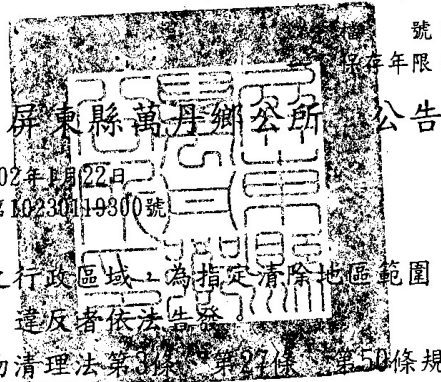 檔 號
保存年限
屏東縣萬丹鄉公所 公告
02年1月22日
10230119300號
之行政區域,為指定清除地區範圍
違反者依法告發。
物清理法第3條、第27條、第50條規